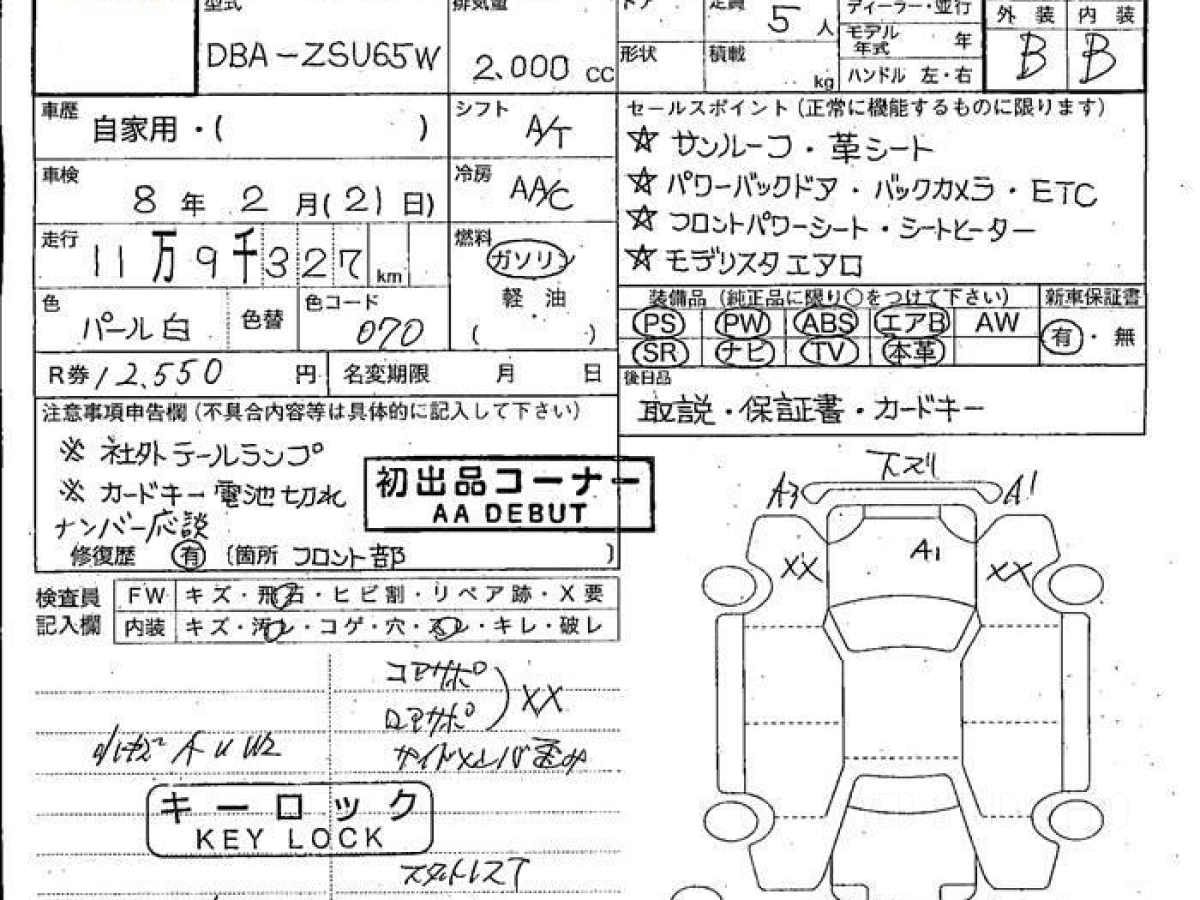 型式
DBA-ZSU65W
排気量
2.000 cc
ドア
定員
5 人
形状
積載
kg
ディーラー・並行
モデル年式 年
ハンドル 左・右
外 装 内 装
B B
車歴 自家用・( )
シフト A/T
車検 8 年 2 月(21 日)
冷房 AA/C
走行 11万9千327 km
燃料 ガソリン
軽 油
( ・ )
色 パール白 色替 色コード 070
R券 12,550 円 名変期限 月 日
セールスポイント(正常に機能するものに限ります)
☆ サンルーフ・革シート
☆ パワーバックドア・バックカメラ・ETC
☆ フロントパワーシート・シートヒーター
☆ モデリスタエアロ
装備品(純正品に限り○をつけて下さい) 新車保証書
PS PW ABS エアB AW 有・無
SR ナビ TV 本革
後日品
取説・保証書・カードキー
注意事項申告欄(不具合内容等は具体的に記入して下さい)
※ 社外テールランプ
※ カードキー電池切れ
ナンバー応談
修復歴 有 (箇所 フロント部 )
初出品コーナー
AA DEBUT
検査員記入欄
FW キズ・飛石・ヒビ割・リペア跡・X要
内装 キズ・汚レ・コゲ・穴・スレ・キレ・破レ
コアサポ
ロアサポ
XX
サイドメンバ歪み
A U W2
キーロック
KEY LOCK
スタットレスT
下ズリ
A3 A1
A1
XX XX